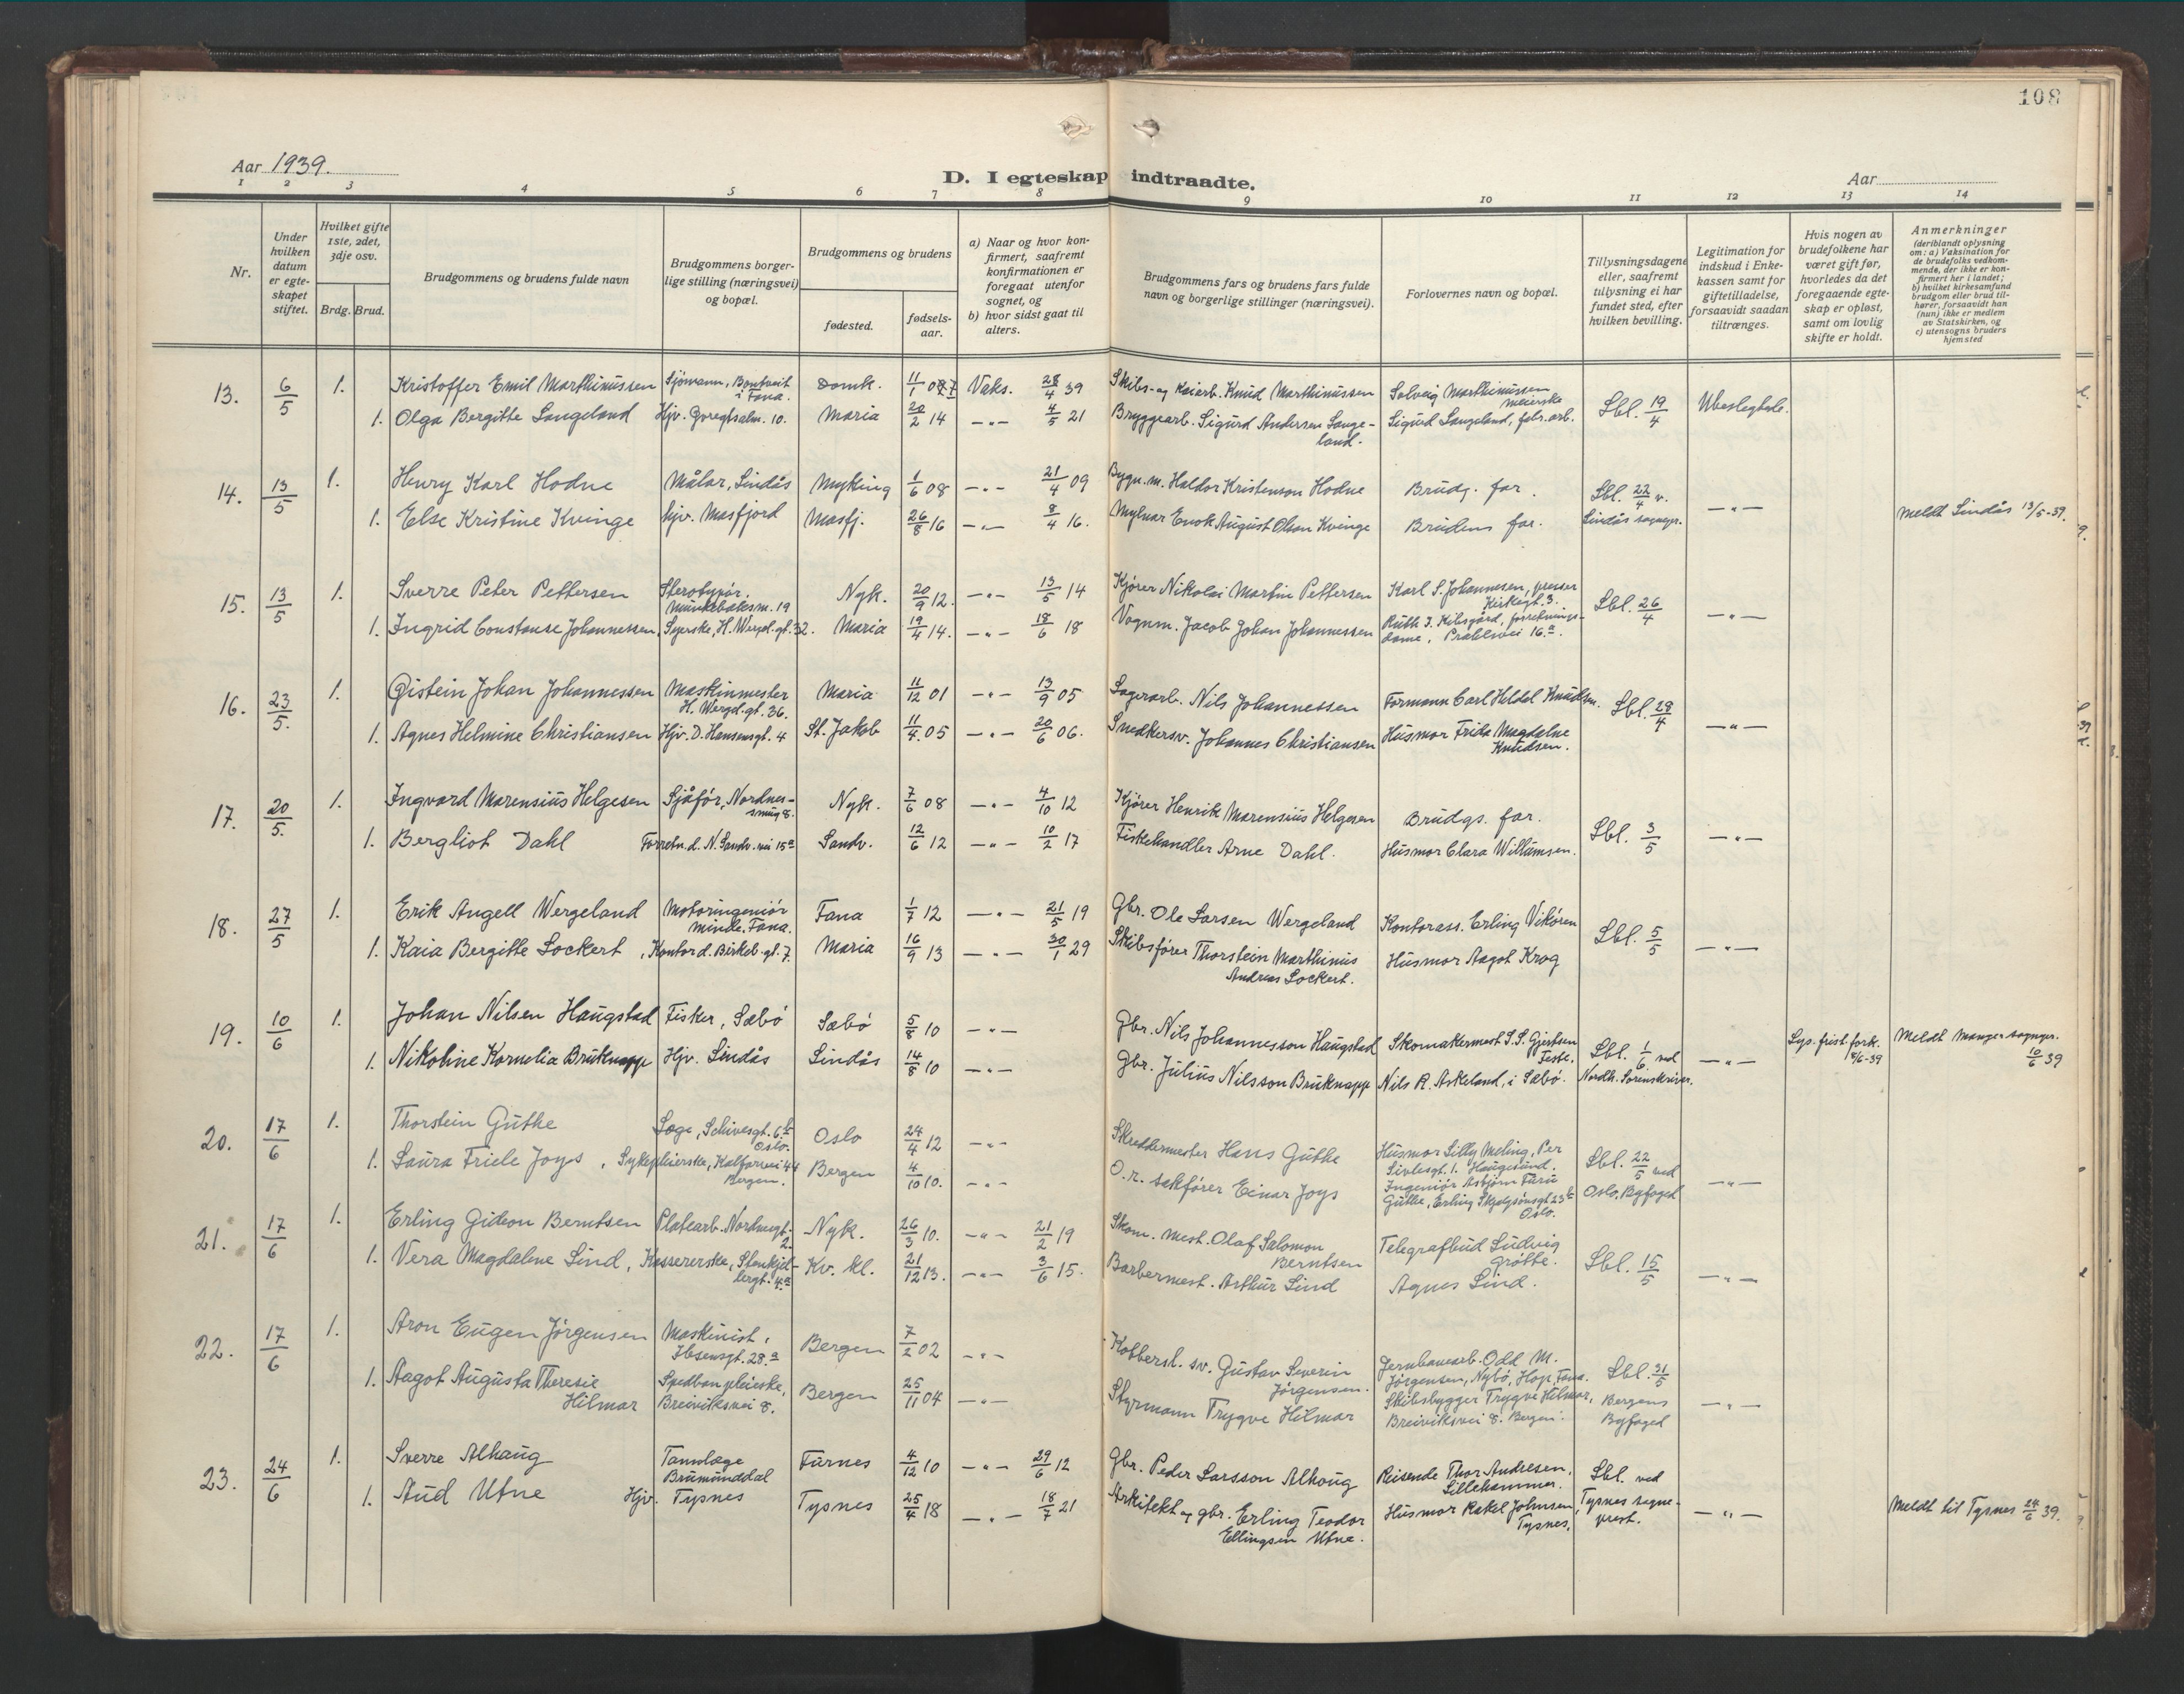 108
Aar 1939.
D. I egteskap indtraadte.
Aar
1 2 3 4 5 6 7 8 9 10 11 12 13 14
Nr.
Under hvilken datum er egteskapet stiftet.
Hvilket gifte 1ste, 2det, 3dje osv.
Brdg. Brud.
Brudgommens og brudens fulde navn
Brudgommens borgerlige stilling (næringsvei) og bopæl.
Brudgommens og brudens
fødested.
fødselsaar.
a) Naar og hvor konfirmert, saafremt konfirmationen er foregaat utenfor sognet, og
b) hvor sidst gaat til alters.
Brudgommens fars og brudens fars fulde navn og borgerlige stillinger (næringsvei).
Forlovernes navn og bopæl.
Tillysningsdagene eller, saafremt tillysning ei har fundet sted, efter hvilken bevilling.
Legitimation for indskud i Enkekassen samt for giftetilladelse, forsaavidt saadan tiltrænges.
Hvis nogen av brudefolkene har været gift før, hvorledes da det foregaaende egteskap er opløst, samt om lovlig skifte er holdt.
Anmerkninger (deriblandt oplysning om: a) Vaksination for de brudefolks vedkommende, der ikke er konfirmert her i landet; b) hvilket kirkesamfund brudgom eller brud tilhører, forsaavidt han (hun) ikke er medlem av Statskirken, og c) utensogns bruders hjemsted
13. 6/5 1. Kristoffer Emil Marthinussen Sjömann, Bontveit i Fana. Domk. 11/1 07 Vaks. 28/4 39 Skibs- og kaiarb. Knud Marthinussen Solveig Marthinussen meierske Sbl. 19/4 Ubeslegtede.
1. Olga Bergitte Langeland Hjv. 10. Maria 20/2 14 —"— 4/5 21 Bryggearb. Sigurd Andersen Langeland. Sigurd Langeland, fabr. arb.
14. 13/5 1. Henry Karl Hodne Målar, Lindås Myking 1/6 08 —"— 21/4 09 Bygn. m. Haldor Kristenson Hodne Brudg. far. Sbl. 22/4 v. Lindås sogнepr. —"— Meldt Lindås 13/5-39.
1. Else Kristine Kvinge hjv. Masfjord Masfj. 26/8 16 —"— 8/4 16. Mylnar Enok August Olson Kvinge Brudens far.
15. 13/5 1. Sverre Peter Pettersen Sterotypör. Munkebæksm. 19 Nyk. 20/9 12. —"— 13/5 14 Kjörer Nikolai Martin Pettersen Karl S. Johannesen, presser Kirkegt. 3. Sbl. 26/4 —"—
1. Ingrid Constanse Johannessen, Syerske, H. Wergel. gt. 32. Maria 19/4 14. —"— 18/6 18 Vognm. Jacob Johan Johannessen Ruth J. Kibsgård, forretningsdame, Prahlsvei 16.a.
16. 23/5. 1. Øistein Johan Johannessen Maskinmester H. Wergel. gt. 36. Maria 11/12 01 —"— 13/9 05 Lagerarb. Nils Johannessen Formann Carl Heldal Knudsen. Sbl. 28/4 —"—
1. Agnes Helmine Christiansen Hjv. D. Hansensgt. 4 St. Jakob 11/4 05 —"— 20/6 06. Snedkersv. Johannes Christiansen Husmor Frida Magdalne Knudsen.
17. 20/5. 1. Ingvard Marensius Helgesen Sjåför, Nordnessmug 8. Nyk. 7/6 08 —"— 4/10 12 Kjörer Henrik Marensius Helgesen Brudgs. far. Sbl. 3/5 —"—
1. Bergliot Dahl Forretn. d. N. Sandv. vei 15a Sandv. 12/6 12 —"— 10/2 17 Fiskehandler Arne Dahl. Husmor Clara Willumsen.
18. 27/5 1. Erik Angell Wergeland Motoringeniör Minde, Fana. Fana 1/7 12 —"— 21/5 19 Gbr. Ole Larsen Wergeland Kontorass. Erling Vikören Sbl. 5/5 —"—
1. Kaia Bergitte Lockert, Kontord. Birkeb. gt. 7. Maria 16/9 13 —"— 30/1 29 Skibsförer Thorstein Marthinus Andreas Lockert. Husmor Aagot Krog
19. 10/6 1. Johan Nilsen Haugstad Fisker, Sæbö Sæbö 5/8 10 —"— Gbr. Nils Johannesson Haugstad Skomakermest S. S. Gjertsen Sbl. 1/6 ved Nordh. Sorenskriver. —"— Lys. frist fork. 8/6-39 Meldt Manger sogнepr. 10/6 39
1. Nikoline Kornelia Bruknapp Hjv. Lindås Lindås 14/8 10 —"— Gbr. Julius Nilsson Bruknapp Nils R. Askeland, i Sæbö.
20. 17/6 1. Thorstein Guthe Læge, Schivesgt. 6b Oslo. Oslo 24/4 12 —"— Skreddermester Hans Guthe Husmor Lilly Meling, Per Sivlesgt. 1. Haugesund. Sbl. 22/5 ved Oslo, Byfoged —"—
1. Laura Friele Joys, Sykepleierske, Kalfarvei 44 Bergen. Bergen 4/10 10. —"— O.r. sakförer Einar Joys Ingeniör Asbjörn Guthe, Erling Skjalgsönsgt 23b Oslo.
21. 17/6 1. Erling Gideon Berntsen Platearb. Nordnesgt. 2. Nyk. 26/3 10. —"— 21/2 19 Skom. mest. Olaf Salomon Berntsen Telegrafbud Ludvig Grötte. Sbl. 15/5 —"—
1. Vera Magdalene Lind, Kassererske, Stenkjellergt. 4.a Kv. kl. 21/12 13. —"— 3/6 15. Barbermest. Arthur Lind Agnes Lind.
22. 17/6 1. Aron Eugen Jörgensen Maskinist, Ibsensgt. 28.a Bergen 7/2 02 —"— Kobbersl. sv. Gustav Severin Jörgensen. Jernbanearb. Odd M. Jörgensen, Nybö, Hop, Fana. Sbl. 31/5 Bergens Byfoged —"—
1. Aagot Augusta Theresie Hilmar Spedbarnpleieske, Breiviksvei 8. Bergen 25/11 04 —"— Styrmann Trygve Hilmar Skibsbygger Trygve Hilmar, Breiviksvei 8. Bergen.
23. 24/6 1. Sverre Alhaug Tannlæge Brumunddal Furnes 4/12 10 —"— 29/6 12 Gbr. Peder Larsson Alhoug Reisende Thor Andresen, Lillehammer. Sbl. ved Tysnes sogneprest. —"— Meldt til Tysnes 24/6 39.
1. Aud Utne Hjv. Tysnes Tysnes 25/4 18 —"— 18/7 21 Arkitekt og gbr. Erling Teodor Ellingsen Utne. Husmor Rakel Johnsen, Tysnes.